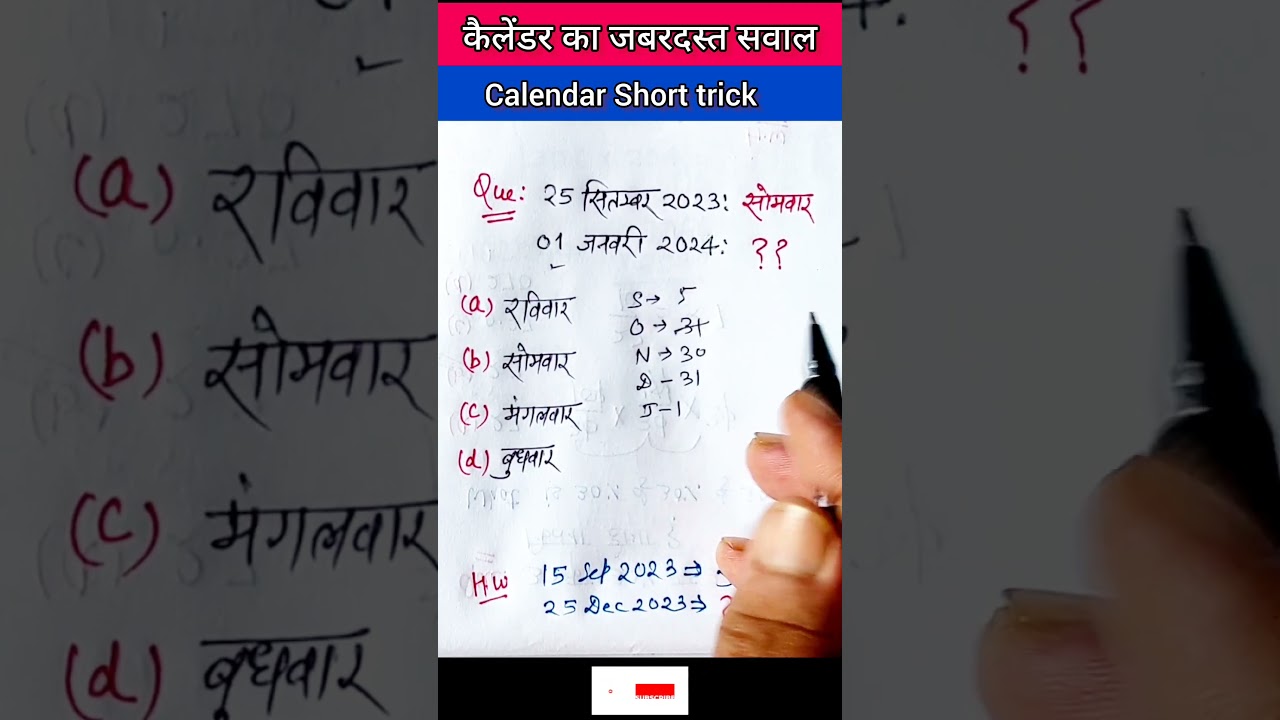 कैलेंडर का जबरदस्त सवाल
Calendar Short trick
Que: 25 सितम्बर 2023: सोमवार
01 जनवरी 2024: ??
(a) रविवार
(b) सोमवार
(c) मंगलवार
(d) बुधवार
S→ 5
O→ 31
N→30
D-31
J-1
H.W 15 Sep 2023⇒
25 Dec 2023⇒ ?
SUBSCRIBE
??
(a) रविवार
(b) सोमवार
(c) मंगलवार
(d) बुधवार